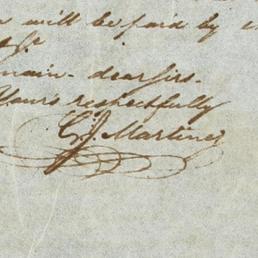 will be paid by
main. dear sir.
Yours respectfully
C. J. Martinez